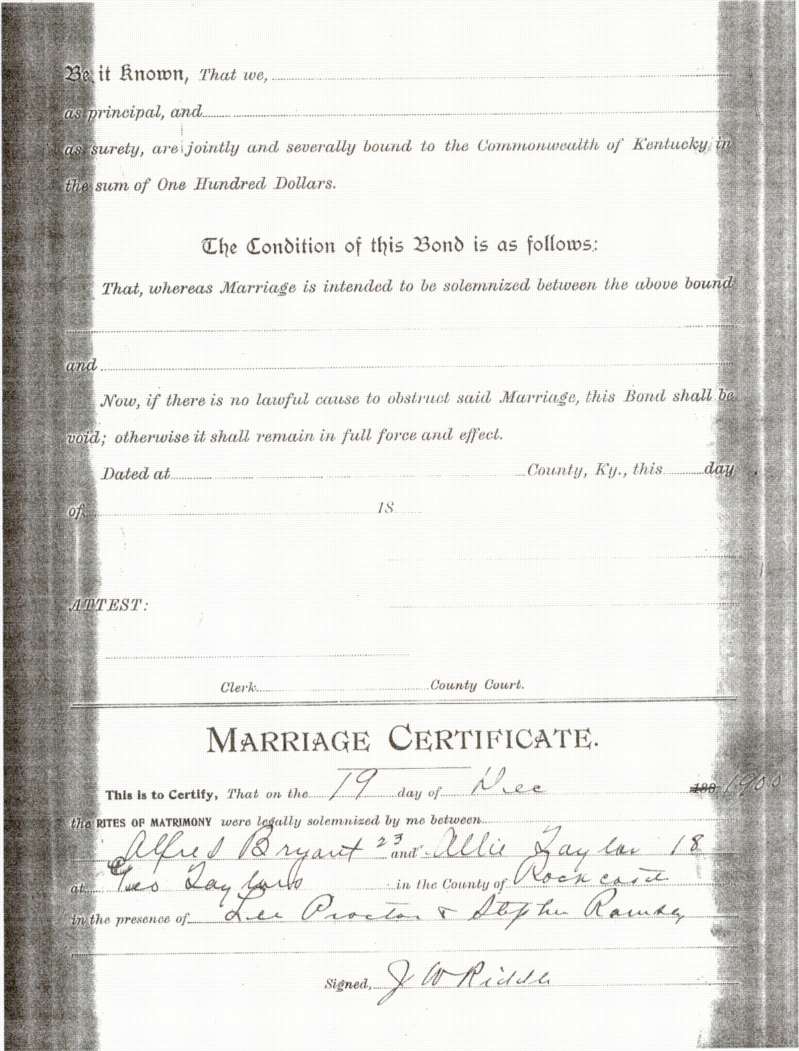 Be it Known, That we,
as principal, and
as surety, are jointly and severally bound to the Commonwealth of Kentucky in
the sum of One Hundred Dollars.
The Condition of this Bond is as follows:
That, whereas Marriage is intended to be solemnized between the above bound
and
Now, if there is no lawful cause to obstruct said Marriage, this Bond shall be
void; otherwise it shall remain in full force and effect.
Dated at County, Ky., this day
of 18
ATTEST:
Clerk County Court.
MARRIAGE CERTIFICATE.
This is to Certify, That on the 19 day of Dec 189 1900
the RITES OF MATRIMONY were legally solemnized by me between
Alfred Bryant 23 and Allie Taylor 18
at Geo Taylors in the County of Rockcastle
in the presence of Lee Proctor & Stephen Ramsey
Signed, J W Riddle